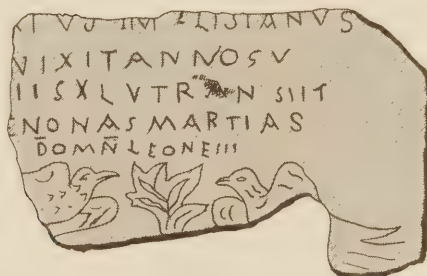 LISIANVS
VIXIT ANNOS V
IIS XL V TR NSIIT
NONAS MARTIAS
DOMN̄ LEONE III